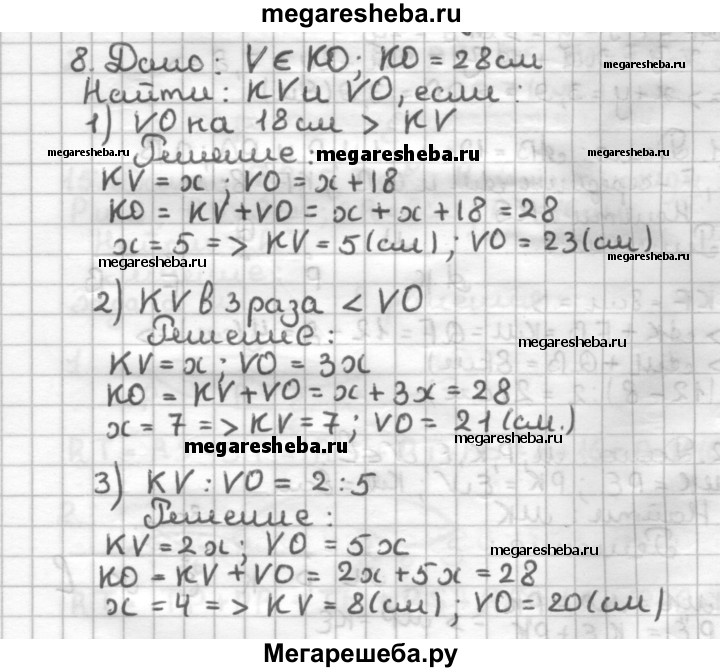 megaresheba.ru
8. Дано: V ∈ KO; KO = 28 см
Найти: KV и VO, если:
megaresheba.ru
1) VO на 18 см > KV
megaresheba.ru
Решение: megaresheba.ru
megaresheba.ru
KV = x; VO = x + 18
KO = KV + VO = x + x + 18 = 28
x = 5 => KV = 5 (см); VO = 23 (см)
megaresheba.ru
megaresheba.ru
2) KV в 3 раза < VO
Решение:
megaresheba.ru
KV = x; VO = 3x
KO = KV + VO = x + 3x = 28
x = 7 => KV = 7; VO = 21 (см.)
megaresheba.ru
megaresheba.ru
3) KV : VO = 2 : 5
Решение:
KV = 2x; VO = 5x
megaresheba.ru
KO = KV + VO = 2x + 5x = 28
x = 4 => KV = 8 (см); VO = 20 (см)
megaresheba.ru
Мегарешеба.ру